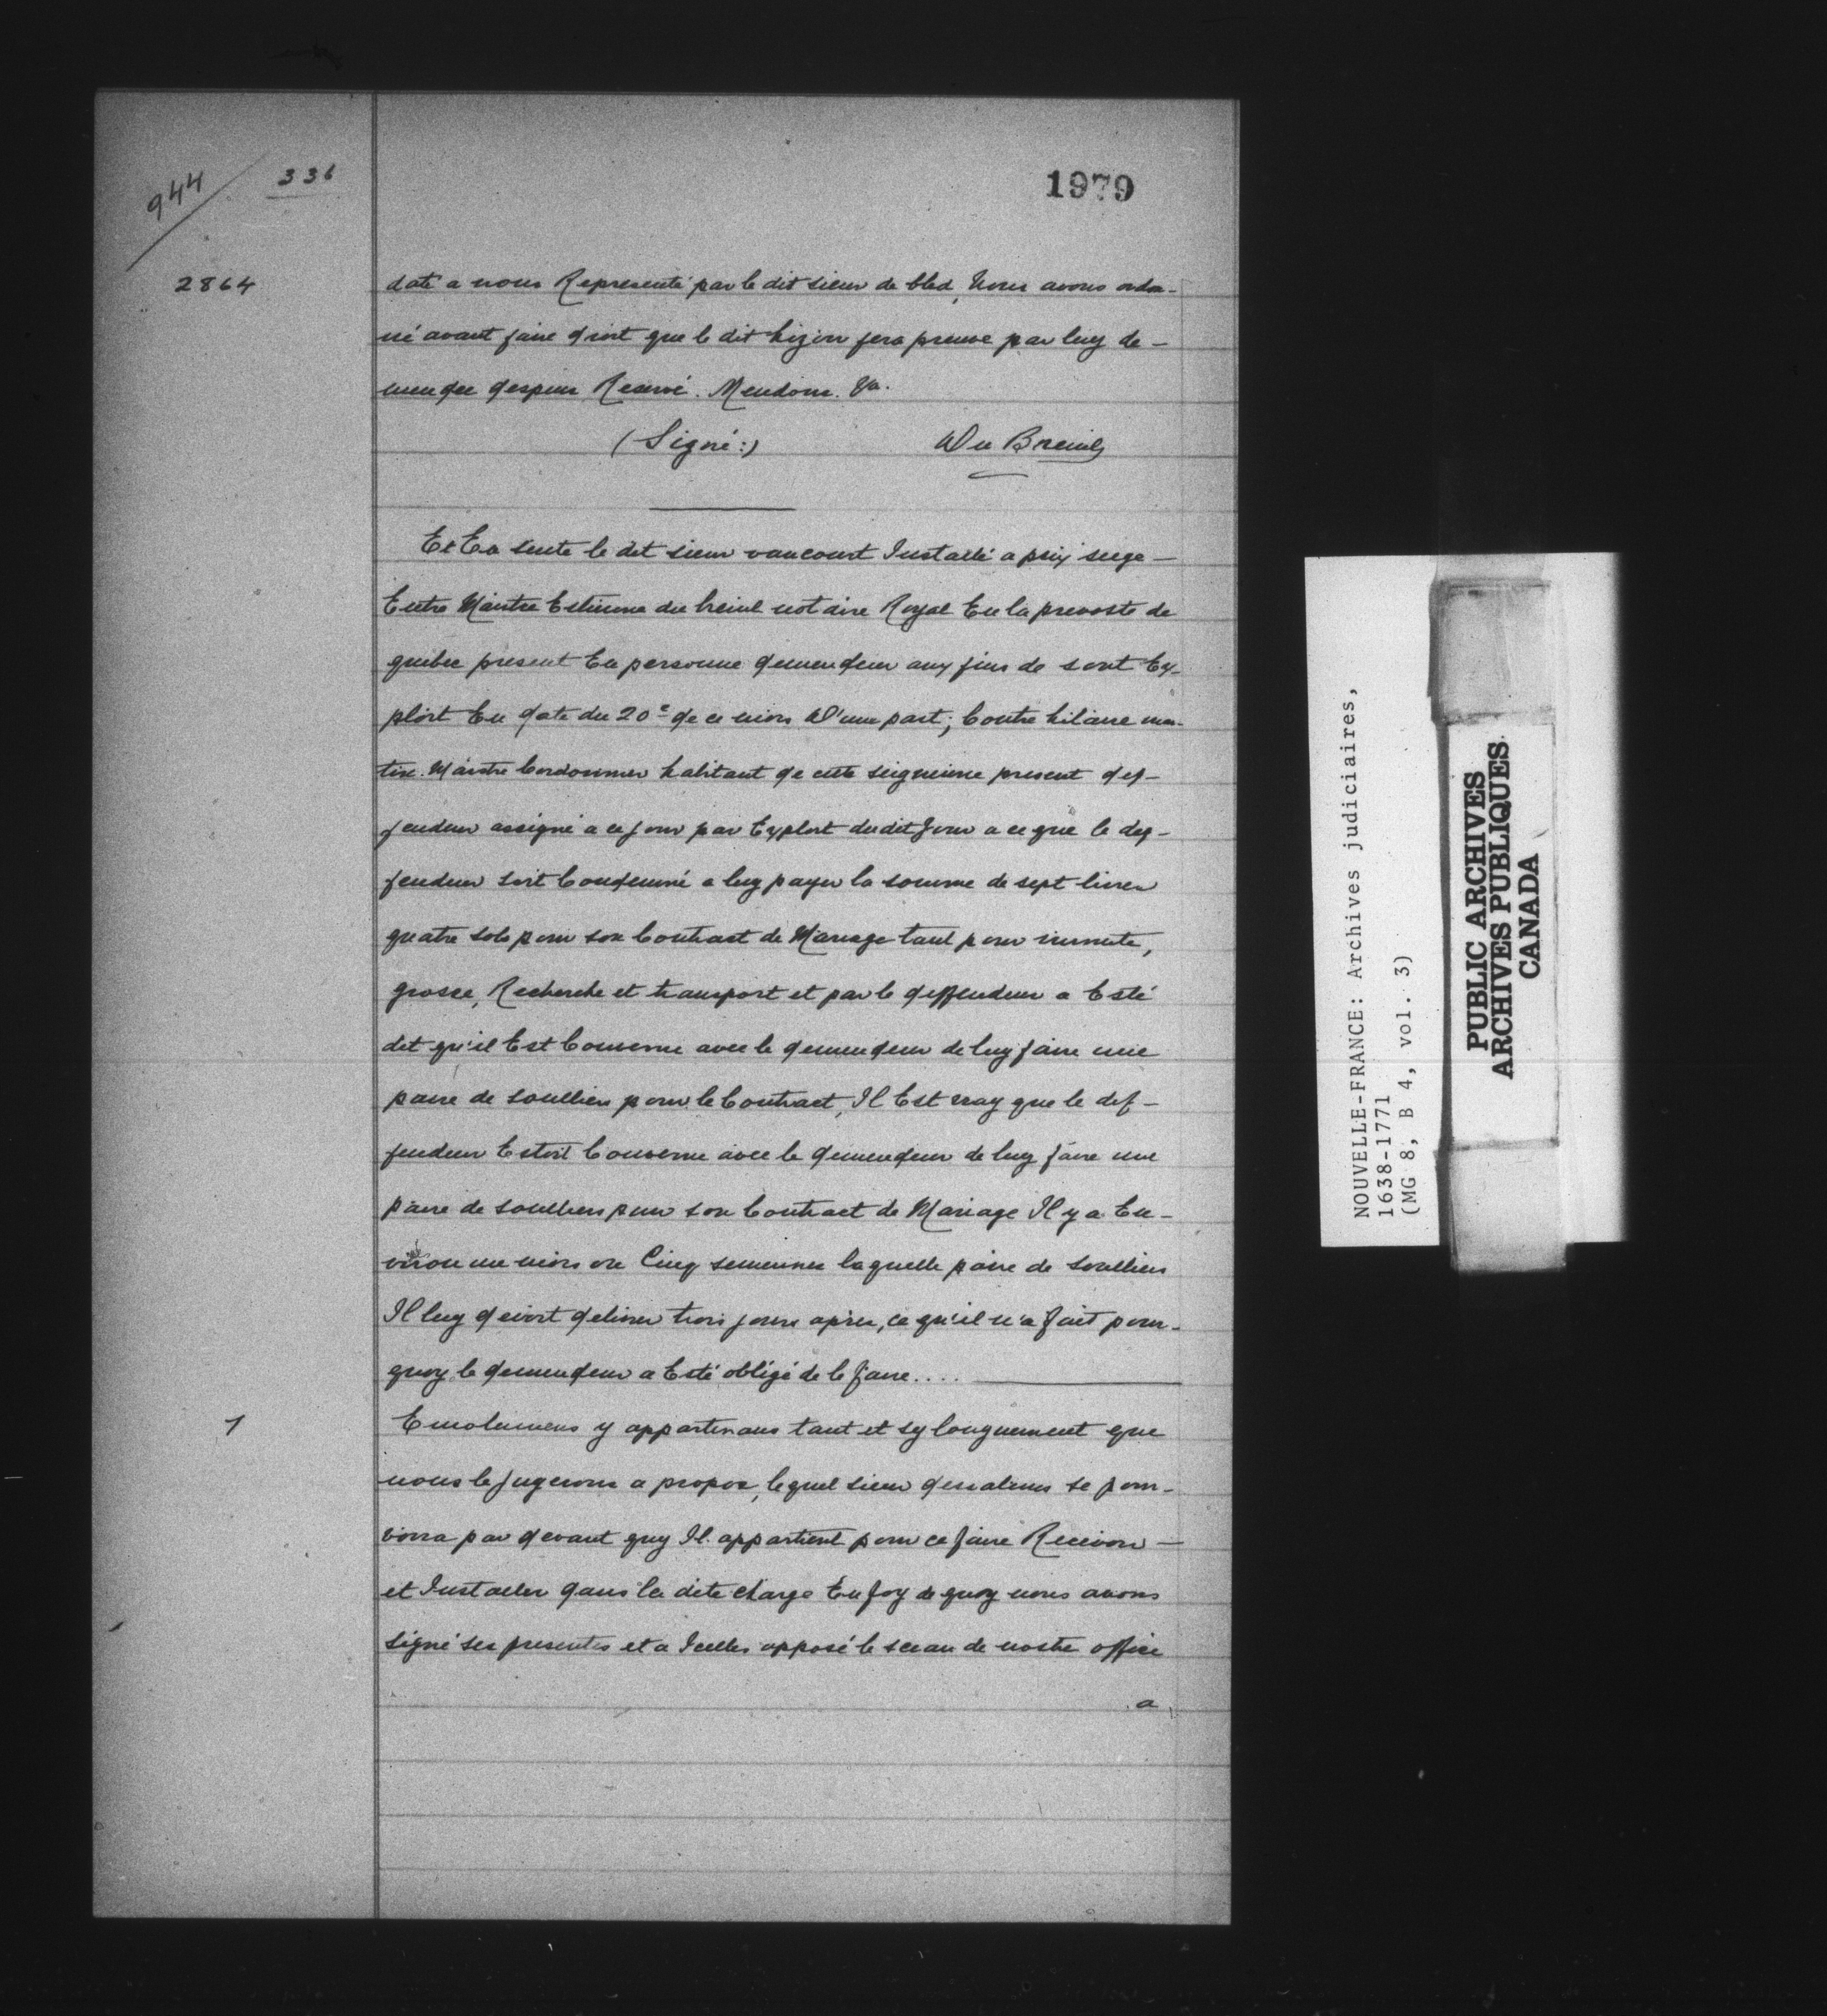 944
336
1979
2864
daté a nous Representé par le dit sieur de bled, Nous avons ordon-
né avant faire droit que le dit hizoir fera preuve par luy de-
mendee despens Reservé. Mendons. &a.
(Signé:) Du Breuil
Et En suite le dit sieur vancourt Installé a prix seege
Entre Maistre Estienne du breuil notaire Royal En la prevosté de
quebec present En personne demendeur aux fins de sont Ex-
ploit En date du 20e de ce mois D'une part; Contre hilaire mar-
tin. Maistre Cordonnier habitant de cette seigneurie present def-
fendeur assigné a ce jour par Exploit dudit Jour a ce que le def-
fendeur soit Condemné a luy payer la somme de sept livres
quatre sols pour son Contract de Mariage tant pour minute,
grosse, Recherche et transport et par le deffendeur a Esté
dit qu'il Est Convenu avec le demendeur de luy faire une
paire de soulliers pour le Contract, Il Est vray que le def-
fendeur Estoit Convenu avec le demendeur de luy faire une
paire de soulliers pour son Contract de Mariage Il y a En-
viron un mois ou Cinq semennes laquelle paire de soulliers
Il luy devoit delivrer trois jours apres, ce qu'il n'a fait pour-
quoy le demendeur a Esté obligé de le faire....
1
Emolumens y appartenans tant et sy longuement que
nous le Jugerons a propos, lequel sieur desalines se pour-
voira par devant quy Il appartient pour ce faire Recevoir
et Installer dans la dite charge En foy de quoy nous avons
signé ses presentes et a Icelles apposé le sceau de nostre office
a
NOUVELLE-FRANCE: Archives judiciaires,
1638-1771
(MG 8, B 4, vol. 3)
PUBLIC ARCHIVES
ARCHIVES PUBLIQUES
CANADA